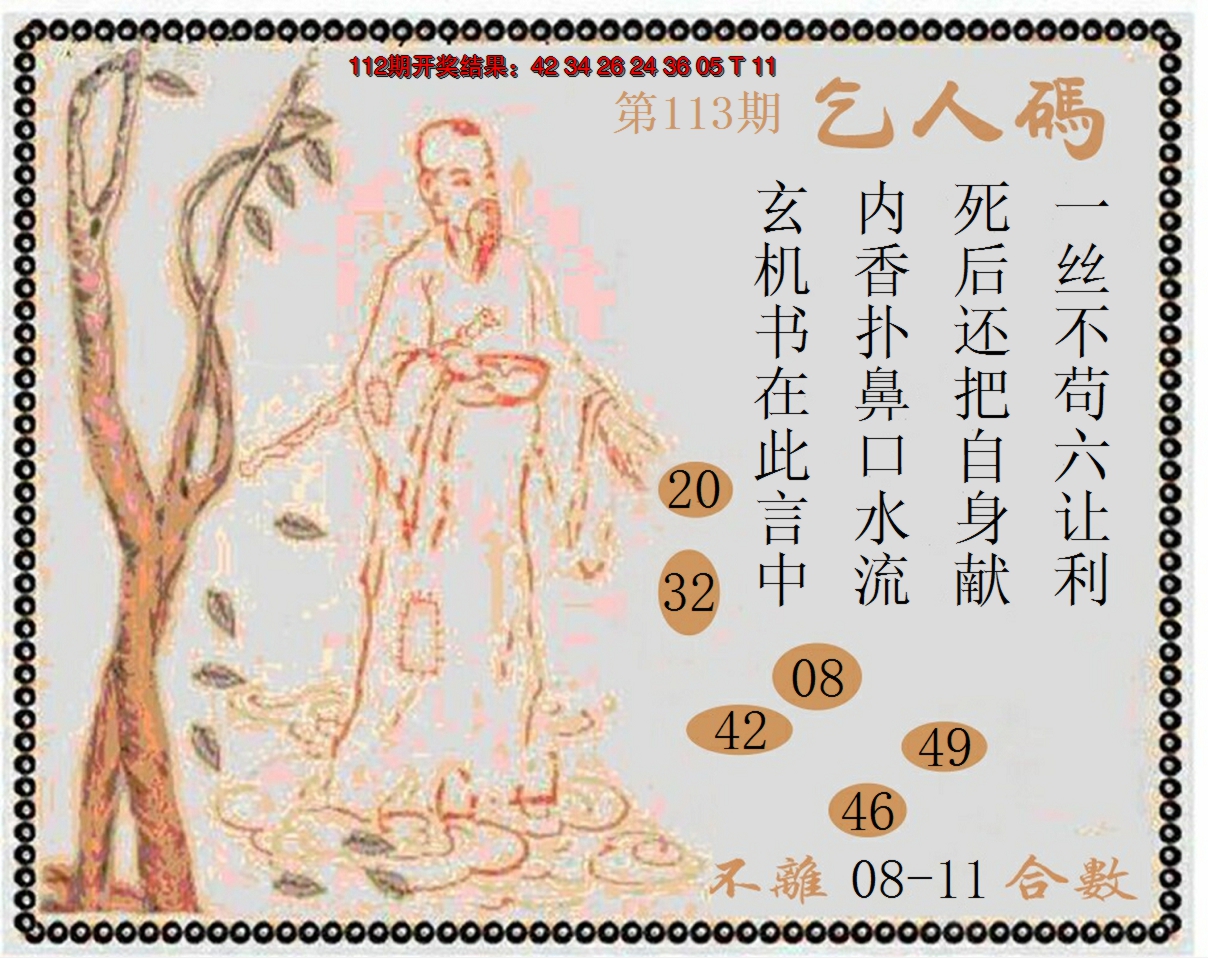 112期开奖结果：42 34 26 24 36 05 T 11
第113期 乞人碼
一丝不苟六让利
死后还把自身献
内香扑鼻口水流
玄机书在此言中
20
32
08
42
49
46
不離 08-11 合數